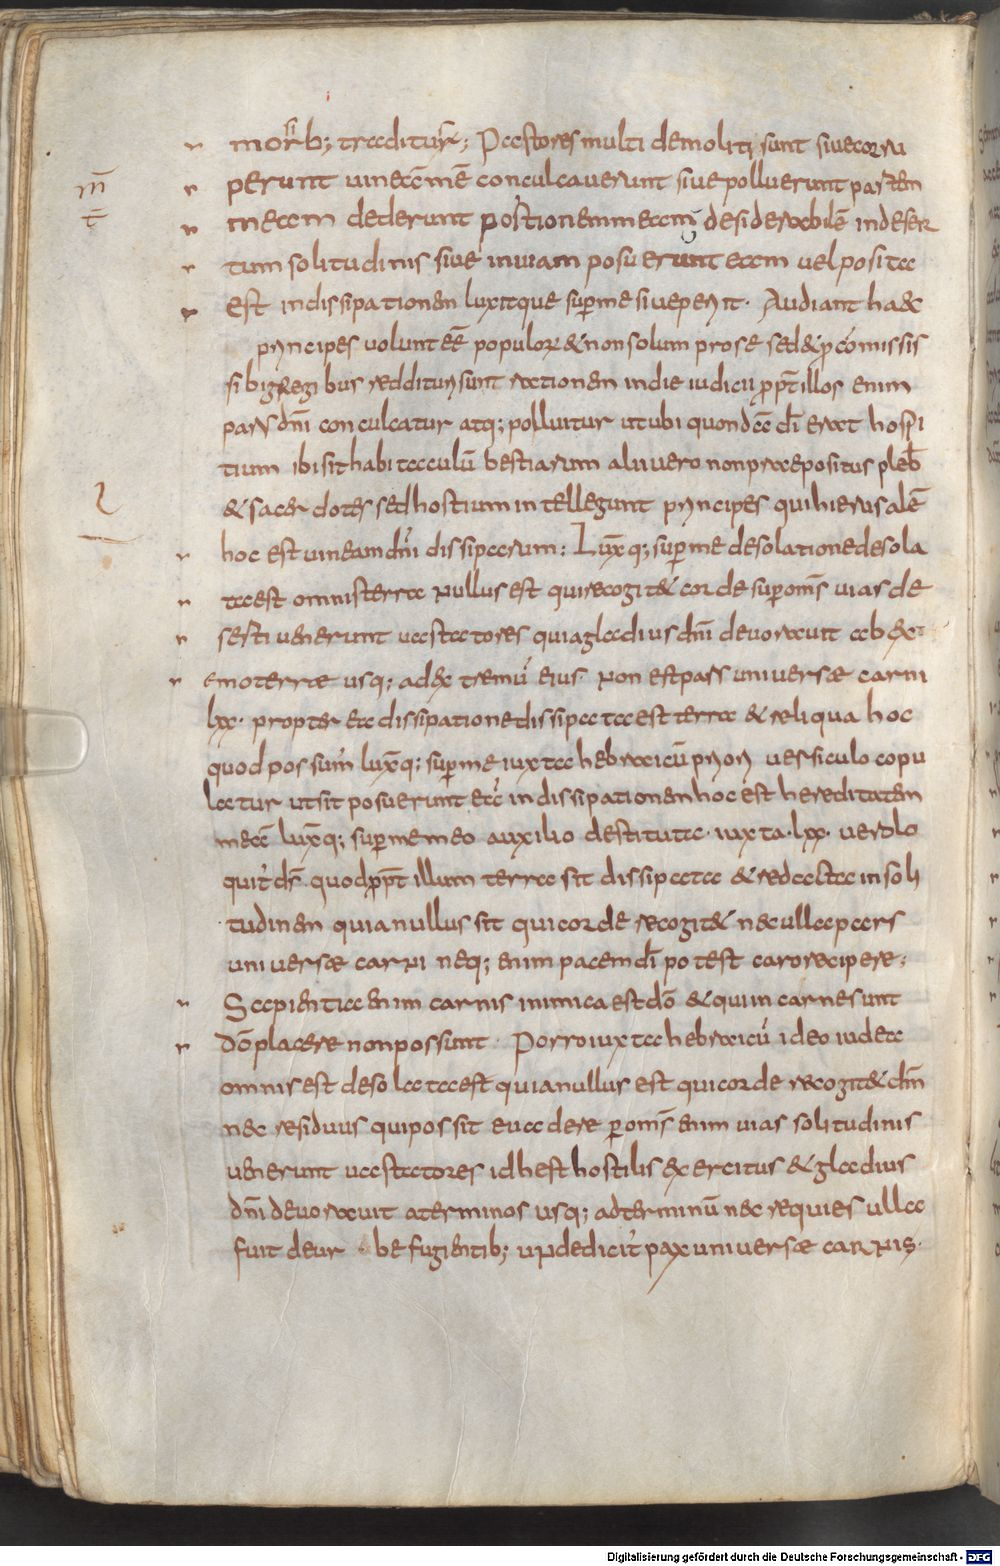 morsib; traditur; Pastores multi demoliti sunt sive corru
perunt vineā meā conculcaverunt sive polluerunt partem
meam dederunt portionem meam desiderabilē in deser
tum solitudinis sive inviam posuerunt eam vel posita
est in dissipationem luxitque sup me sive periit. Audiant haec
principes volunt eē populor & non solum pro se sed & p comissis
sibi gregibus reddituri sunt rationem in die iudicii ppt illos enim
pars dñi conculcatur atq; polluitur ut ubi quondā dī erat hospi
tium ibi sit habitaculū bestiarum alii vero non praepositus pleb
& sacerdotes sed hostium intellegunt principes qui hierusalē
hoc est vineam dñi dissiparunt: Luxq; sup me desolatione desola
ta est omnis terra nullus est qui recogit& corde sup oms vias de
serti venerunt vastatores quia gladius dñi devoravit ab ex
emo terrae usq; ad ex tremū eius non est pax universae carni
lxx. propter eā dissipatione dissipata est terra & reliqua hoc
quod possum luxq; sup me iuxta hebraicū priori versiculo copu
latur ut sit posuerunt eā in dissipationem hoc est hereditatem
meā luxq; sup me meo auxilio destituta. iuxta. lxx. vero lo
quit ds quod ppt illum terra sit dissipata & redacta in soli
tudinem quia nullus sit qui corde recogit& nec ulla pars
universae carni neq; enim pacem dī potest caro recipere;
Sapientia enim carnis inimica est dō & qui in carne sunt
dō placere non possunt. Porro iuxta hebraicū ideo iudea
omnis est desolata est quia nullus est qui corde recogit& dñm
nec residuus qui possit evadere p oms enim vias solitudinis
venerunt vastatores id hest hostilis exercitus & gladius
dñi devoravit a terminos usq; ad terminū nec requies ulla
fuit de ur be fugientib; u dedicit pax universae carnis.
Digitalisierung gefördert durch die Deutsche Forschungsgemeinschaft - DFG